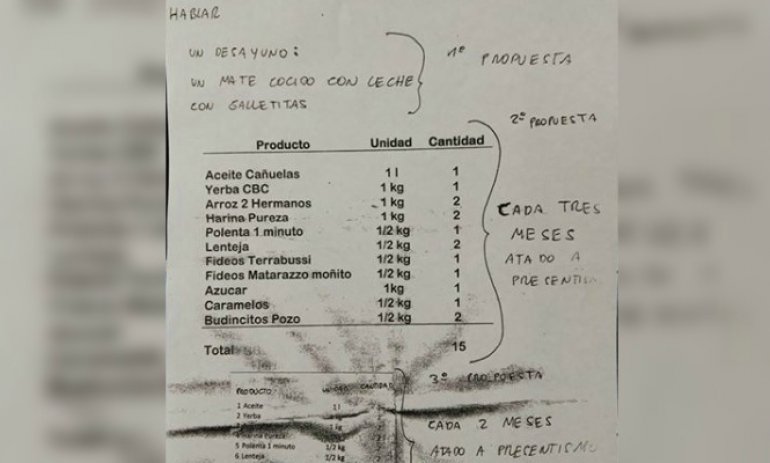 HABLAR
UN DESAYUNO:
UN MATE COCIDO CON LECHE
CON GALLETITAS
1º PROPUESTA
2º PROPUESTA
Producto Unidad Cantidad
Aceite Cañuelas 1 l 1
Yerba CBC 1 kg 1
Arroz 2 Hermanos 1 kg 2
Harina Pureza 1 kg 2
Polenta 1 minuto 1/2 kg 1
Lenteja 1/2 kg 2
Fideos Terrabussi 1/2 kg 1
Fideos Matarazzo moñito 1/2 kg 1
Azucar 1kg 1
Caramelos 1/2 kg 1
Budincitos Pozo 1/2 kg 2
Total 15
CADA TRES
MESES
ATADO A
PRESENTISM
3º PROPUESTA
PRODUCTO UNIDAD CANTIDAD
1 Aceite 1 l
2 Yerba
4 Harina Pureza 1 kg
5 Polenta 1 minuto 1/2 kg
6 Lenteja 1/2 kg
CADA 2 MESES
ATADO A PRESENTISMO